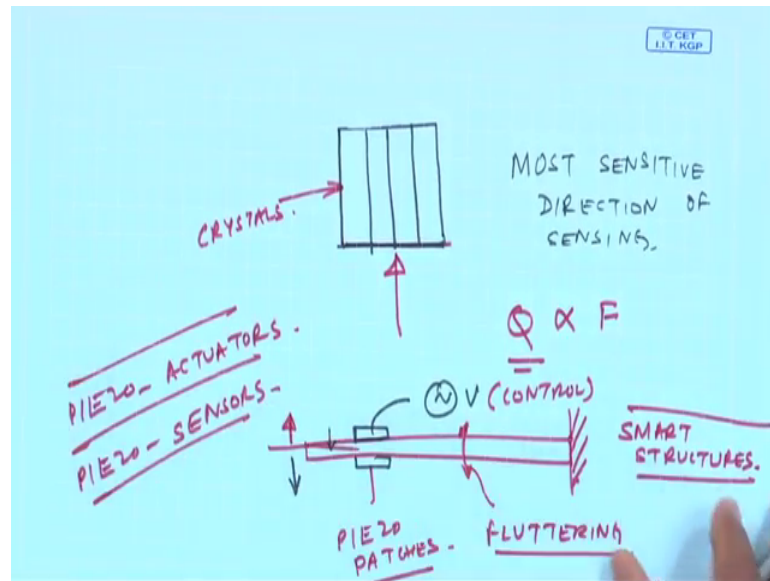 © CET
I.I.T. KGP
MOST SENSITIVE
DIRECTION OF
SENSING.
CRYSTALS.
Q ∝ F
PIEZO- ACTUATORS.
PIEZO- SENSORS-
~ V (CONTROL)
SMART
STRUCTURES.
PIEZO
PATCHES-
FLUTTERING